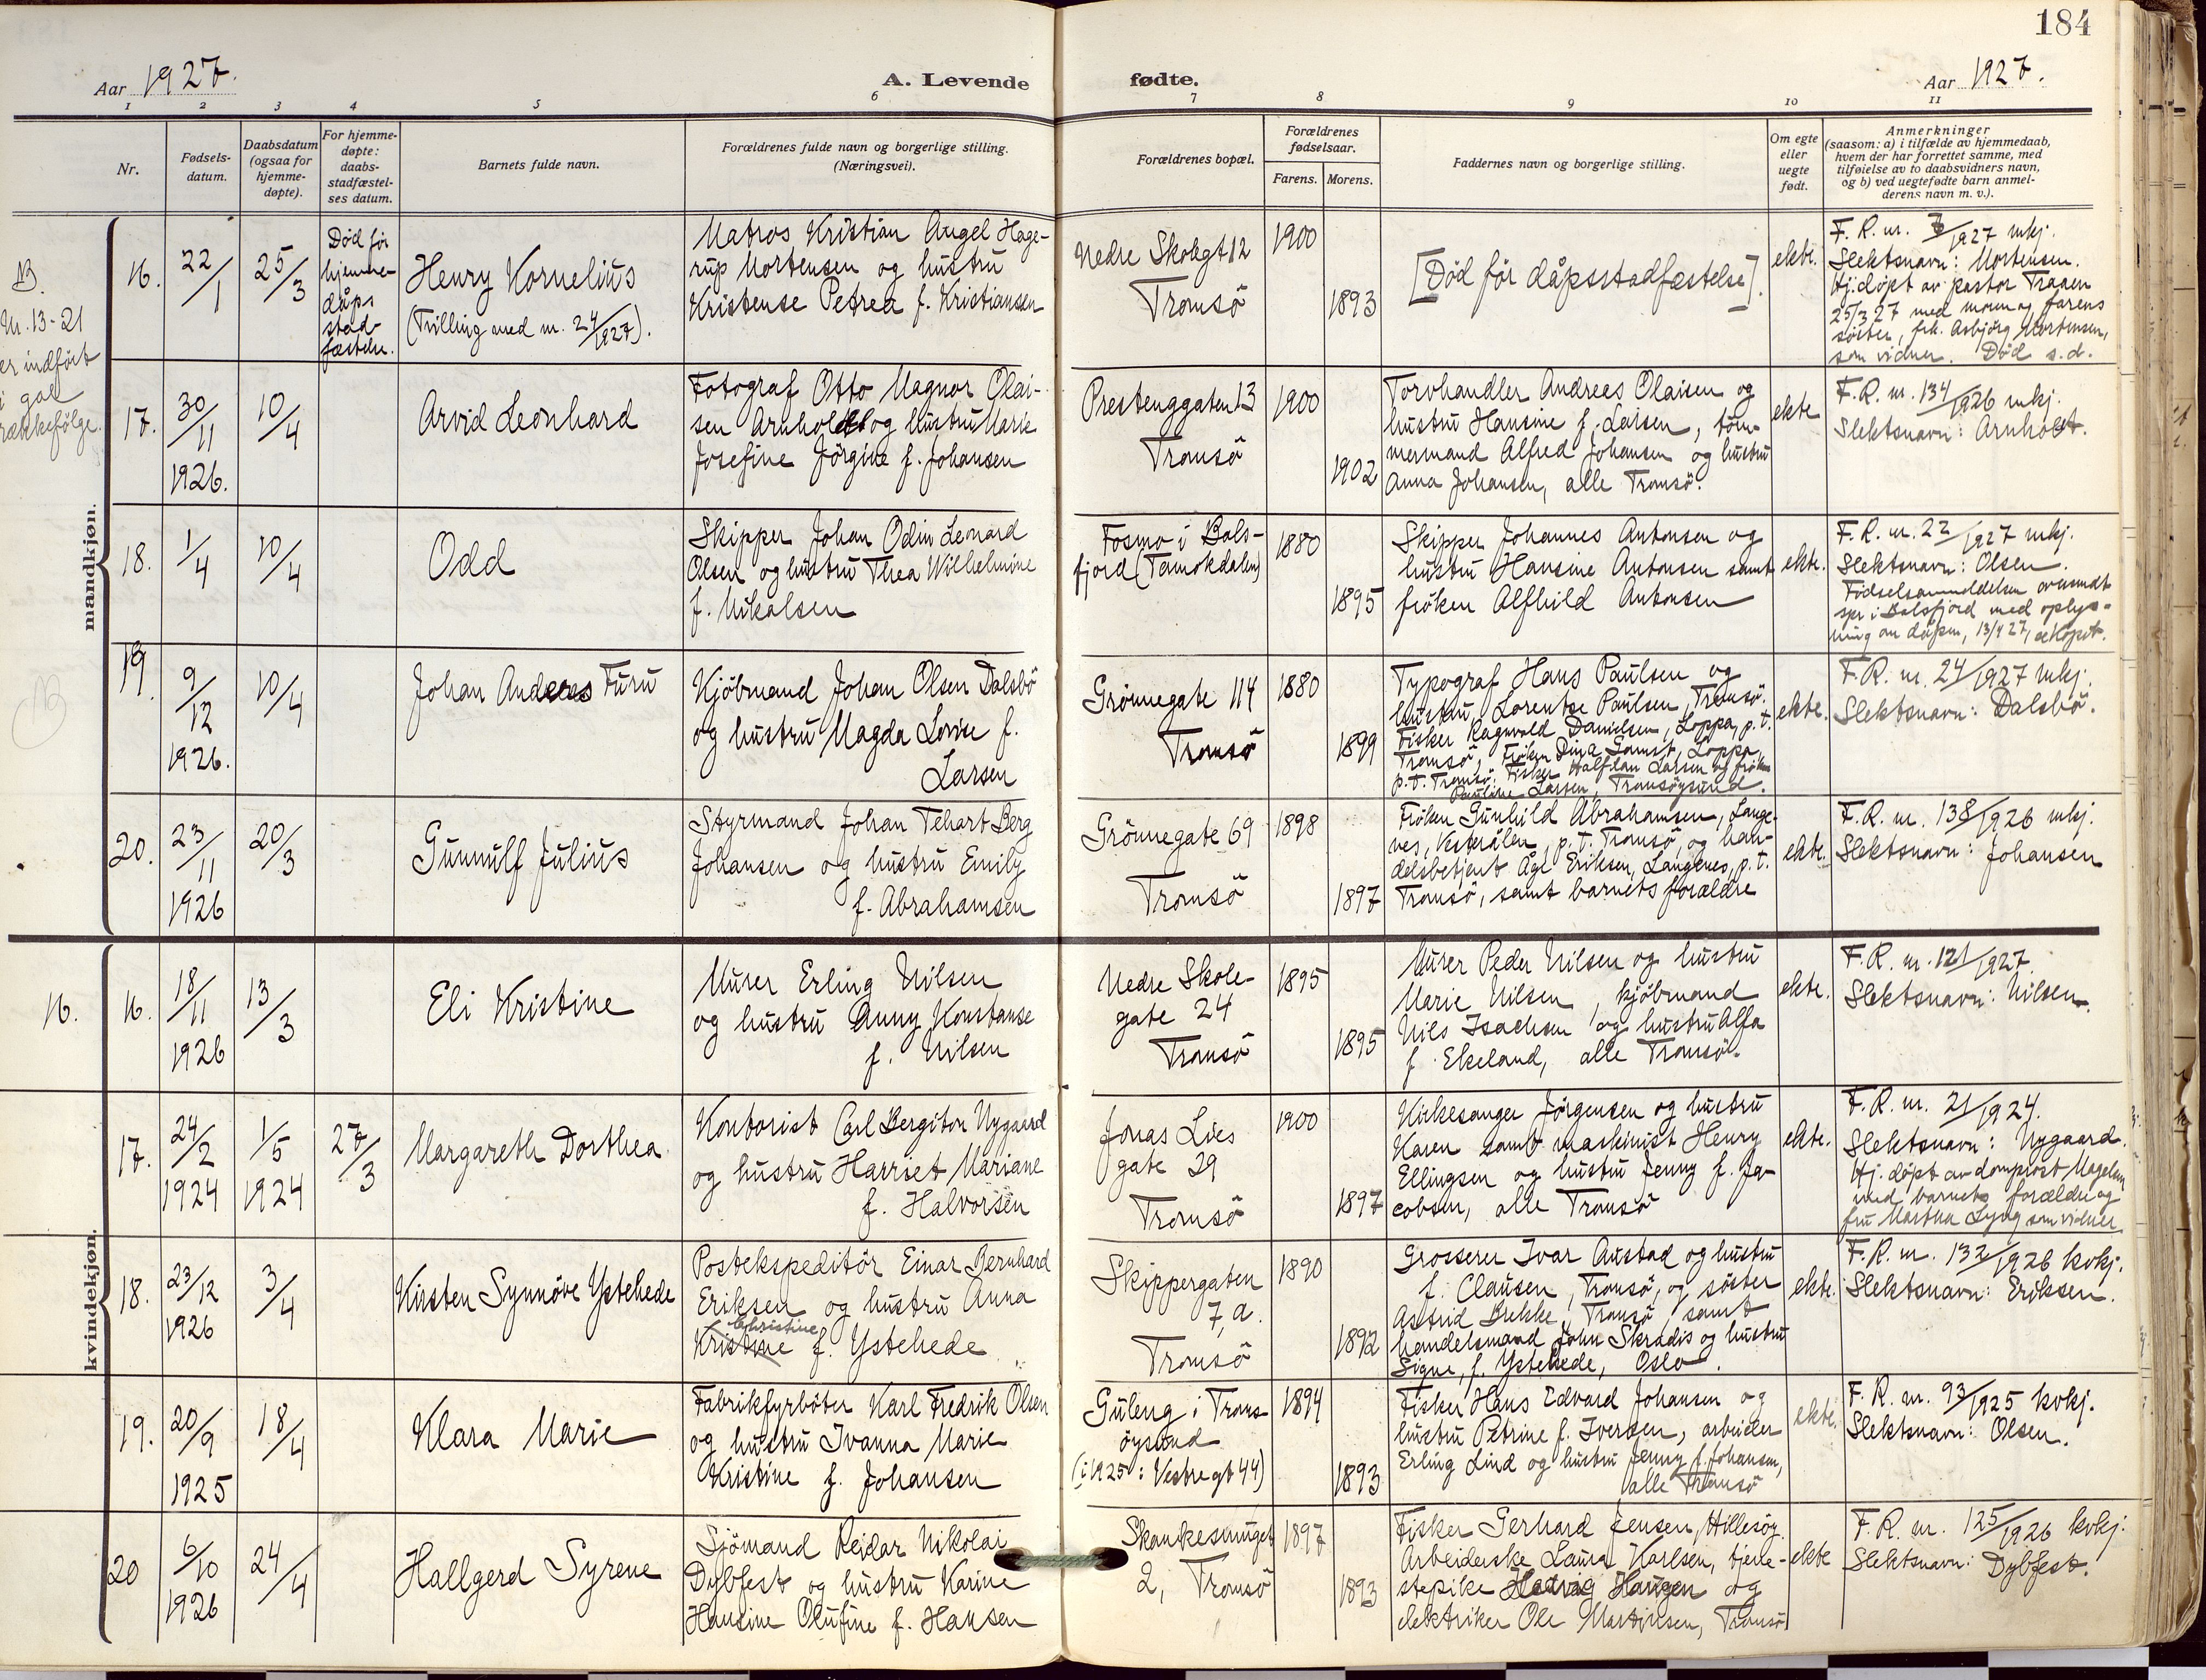 184
Aar 1927.
A. Levende fødte.
Aar 1927.
1 2 3 4 5 6 7 8 9 10 11
Nr.
Fødsels-
datum.
Daabsdatum
(ogsaa for
hjemme-
døpte).
For hjemme-
døpte:
daabs-
stadfæstel-
ses datum.
Barnets fulde navn.
Forældrenes fulde navn og borgerlige stilling.
(Næringsvei).
Forældrenes bopæl.
Forældrenes
fødselsaar.
Farens. Morens.
Faddernes navn og borgerlige stilling.
Om egte
eller
uegte
født.
Anmerkninger
(saasom: a) i tilfælde av hjemmedaab,
hvem der har forrettet samme, med
tilføielse av to daabsvidners navn,
og b) ved uegtefødte barn anmel-
derens navn m. v.).
NB.
Nr. 13-21
er indført
i gal
rækkefølge.
mandkjøn.
16.
22/1
25/3
Død før
hjemme-
dåps
stad-
fæstelse.
Henry Kornelius
(Tvilling med nr. 24/1927).
Matros Kristian Angel Hage-
rup Mortensen og hustru
Kristense Petrea f. Kristiansen
Nedre Skolegt 12
Tromsö
1900
1893
[Död för dåpsstadfæstelse].
ekte.
F. R. nr. 7/1927 mkj.
Slektsnavn: Mortensen.
Hj. döpt av pastor Traaen
25/3 27 med moren og farens
söster, frk. Asbjörg Mortensen,
som vidner. Död s.d.
17.
30/11
1926.
10/4
Arvid Leonhard
Fotograf Otto Magnor Olai-
sen Arnholdt og hustru Marie
Josefine Jörgine f. Johansen
Prestenggaten 13
Tromsö
1900
1902
Torvhandler Andreas Olaisen og
hustru Hansine f. Larsen, töm-
mermand Alfred Johansen og hustru
Anna Johansen, alle Tromsö.
ekte
F. R. nr. 134/1926 mkj.
Slektsnavn: Arnholdt.
18.
1/4
10/4
Odd
Skipper Johan Odin Leonard
Olsen og hustru Thea Wilhelmine
f. Nikalsen
Fosmo i Bals-
fjord (Tamokdalen)
1880
1895
Skipper Johannes Antonsen og
hustru Hansine Antonsen samt
fröken Alfhild Antonsen
ekte.
F. R. nr. 22/1927 mkj.
Slektsnavn: Olsen.
Födselsanmeldelsen oversendt
spr. i Balsfjord med oplys-
ning om dåpen, 13/4 27,
NB
19.
9/12
1926.
10/4
Johan Anderes Furu
Kjöbmand Johan Olsen Dalsbö
og hustru Magda Lovise f.
Larsen
Grönnegate 114
Tromsö
1880
1899
Typograf Hans Paulsen og
hustru Lorentse Paulsen, Tromsö.
Fisker Ragnvald Danielsen, Loppa, p.t.
Tromsö, Fröken Dina Gamst, Loppa,
p.t. Tromsö, Fisker Halfdan Larsen og fröken
Pauline Larsen, Tromsöysund.
ekte.
F. R. nr. 24/1927 mkj.
Slektsnavn: Dalsbö.
20.
23/11
1926
20/3
Gunnulf Julius
Styrmand Johan Tehart Berg
Johansen og hustru Emily
f. Abrahamsen
Grönnegate 69
Tromsö
1898
1897
Fröken Gunhild Abrahamsen, Lange-
nes, Vesterålen, p.t. Tromsö, og han-
delsbetjent Åge Eriksen, Langenes, p.t.
Tromsö, samt barnets forældre
ekte.
F. R. nr. 138/1926 mkj.
Slektsnavn: Johansen
kvindekjøn.
16.
16.
18/11
1926
13/3
Eli Kristine
Murer Erling Nilsen
og hustru Anny Konstanse
f. Nilsen
Nedre Skole-
gate 24
Tromsö
1895
1895
Murer Peder Nilsen og hustru
Marie Nilsen, kjöbmand
Nils Isachsen og hustru Alfa
f. Ekeland, alle Tromsö.
ekte.
F. R. nr. 121/1927.
Slektsnavn: Nilsen.
17.
24/2
1924
1/5
1924
27/3
Margareth Dorthea
Kontorist Carl Bergiton Nygaard
og hustru Harriet Mariane
f. Halvorsen
Jonas Lies
gate 29
Tromsö
1900
1897
Kirkesanger Jörgensen og hustru
Karen samt maskinist Henry
Ellingsen og hustru Jenny f. Ja-
cobsen, alle Tromsö
ekte.
F. R. nr. 21/1924.
Slektsnavn: Nygaard.
Hj. döpt av domprost Magelssen
med barnets forældre og
fru Martha Lyng som vidner
18.
23/12
1926
3/4
Kirsten Synnöve Ystehede
Postekspeditör Einar Bernhard
Eriksen og hustru Anna
Christine
Kristine f. Ystehede
Skippergaten
7, a.
Tromsö
1890
1892
Grosserer Ivar Austad og hustru
f. Clausen, Tromsö, og söster
Astrid Brekke, Tromsö, samt
handelsmand John Skradis og hustru
Signe, f. Ystehede, Oslo.
ekte.
F. R. nr. 132/1926 kvkj.
Slektsnavn: Eriksen.
19.
20/9
1925
18/4
Klara Marie
Fabrikfyrböter Karl Fredrik Olsen
og hustru Ivanna Marie
Kristine f. Johansen
Guleng i Troms-
öysund
(i 1925: Vestregt 44)
1894
1893
Fisker Hans Edvard Johansen og
hustru Petrine f. Iversen, arbeider
Erling Lind og hustru Jenny f. Johansen,
alle Tromsö
ekte.
F. R. nr. 93/1925 kvkj.
Slektsnavn: Olsen.
20
6/10
1926
24/4
Hallgerd Syrene
Sjömand Reidar Nikolai
Dybfest og hustru Karine
Hansine Olufine f. Hansen
Skankesmuget
2, Tromsö
1897
1893
Fisker Gerhard Jensen, Hillesöy
Arbeiderske Laura Karlsen, tjene-
stepike Hedvig Haugen og
elektriker Ole Martinsen, Tromsö
ekte
F. R. nr. 125/1926 kvkj.
Slektsnavn: Dybfest.